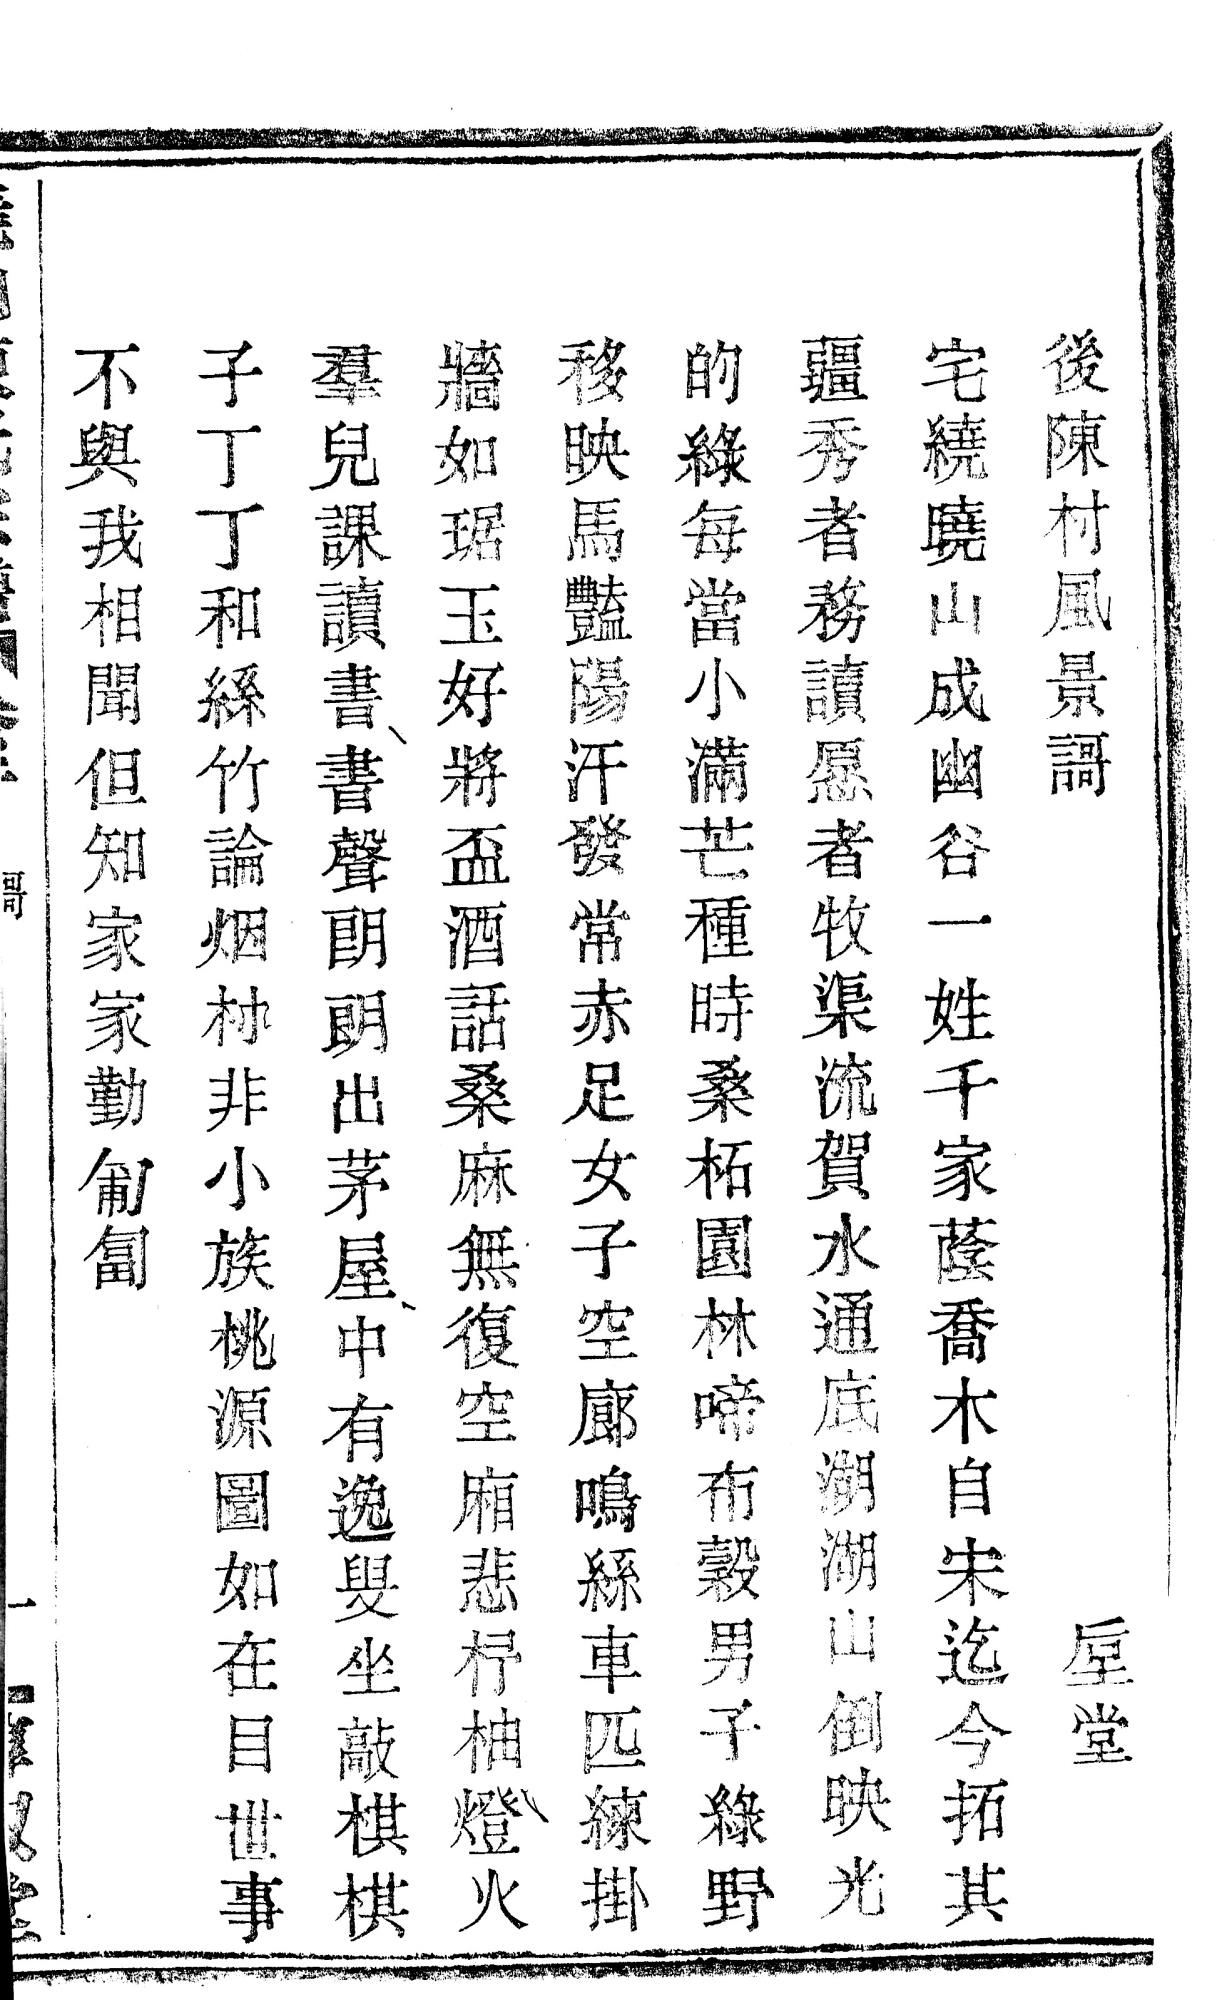 後陳村風景謌　垕堂
宅繞曉山成幽谷一姓千家蔭喬木自宋迄今拓其
疆秀者務讀愿者牧渠流賀水通底湖湖山倒映光
的綠每當小滿芒種時桑柘園林啼布穀男子綠野
移映馬豔陽汗發常赤足女子空廊鳴絲車匹練掛
牆如琚玉好將盃酒話桑麻無復空廂悲杼柚燈火
羣兒課讀書書聲朗朗出茅屋中有逸叟坐敲棋棋
子丁丁和絲竹論烟村非小族桃源圖如在目世事
不與我相聞但知家家勤匍匐
謌
一